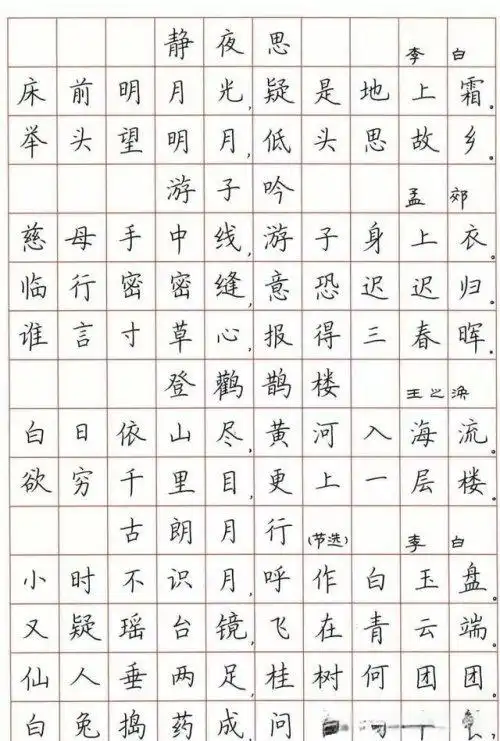 静夜思 李白
床前明月光,疑是地上霜。
举头望明月,低头思故乡。
游子吟 孟郊
慈母手中线,游子身上衣。
临行密密缝,意恐迟迟归。
谁言寸草心,报得三春晖。
登鹳鹊楼 王之涣
白日依山尽,黄河入海流。
欲穷千里目,更上一层楼。
古朗月行(节选) 李白
小时不识月,呼作白玉盘。
又疑瑶台镜,飞在青云端。
仙人垂两足,桂树何团团。
白兔捣药成,问